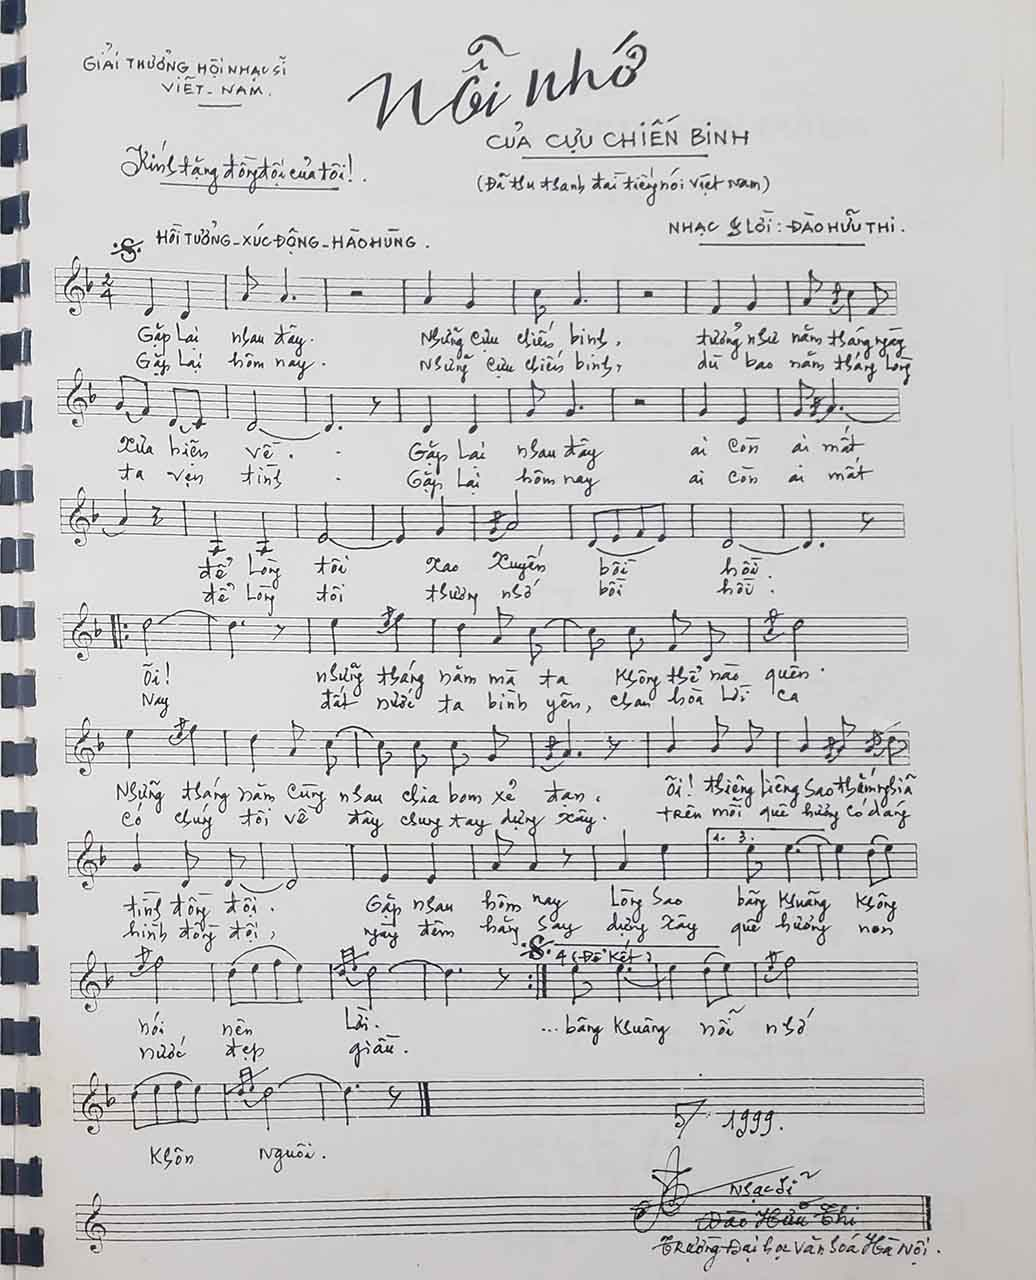 GIẢI THƯỞNG HỘI NHẠC SĨ
VIỆT-NAM.
Nỗi nhớ
CỦA CỰU CHIẾN BINH
Kính tặng đồng đội của tôi!
(Đã thu thanh đài tiếng nói Việt Nam)
HỒI TƯỞNG-XÚC ĐỘNG-HÀO HÙNG.
NHẠC & LỜI: ĐÀO HỮU THI.
2
4
Gặp lại nhau đây. Những cựu chiến binh, tưởng như năm tháng ngày
Gặp lại hôm nay. Những cựu chiến binh, dù bao năm tháng lòng
xưa hiện về. Gặp lại nhau đây ai còn ai mất
ta vẹn tình Gặp lại hôm nay ai còn ai mất
để lòng tôi xao xuyến bồi hồi.
để lòng tôi thương nhớ bồi hồi.
Ôi! những tháng năm mà ta không thể nào quên.
Nay đất nước ta bình yên, chan hòa lời ca
Những tháng năm cùng nhau chia bom xẻ đạn. Ôi! thiêng liêng sao thắm nghĩa
có chúng tôi về đây chung tay dựng xây. trên mỗi quê hương có dáng
1. 3.
tình đồng đội. Gặp nhau hôm nay lòng sao bâng khuâng không
hình đồng đội, ngày đêm hăng say dựng xây quê hương non
4 (Để kết)
nói nên lời. ...bâng khuâng nỗi nhớ
nước đẹp giầu.
khôn nguôi.
5/1999.
Nhạc sĩ
Đào Hữu Thi
Trường Đại học văn hoá Hà Nội.